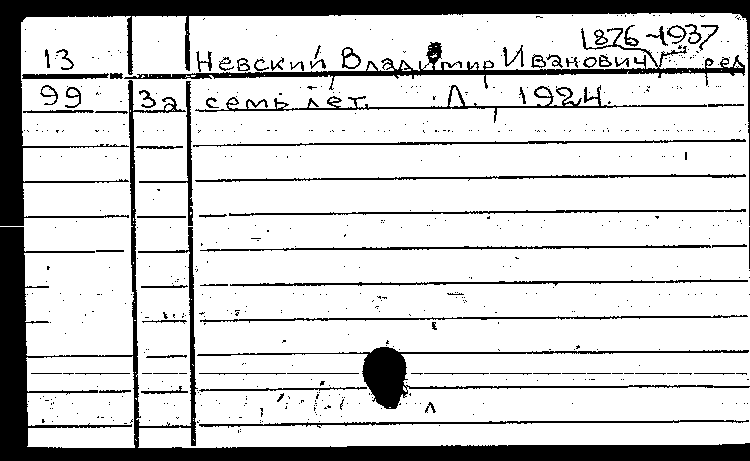 1876-1937
13 Невский, Владимир Иванович, ред
99 За семь лет. Л., 1924.